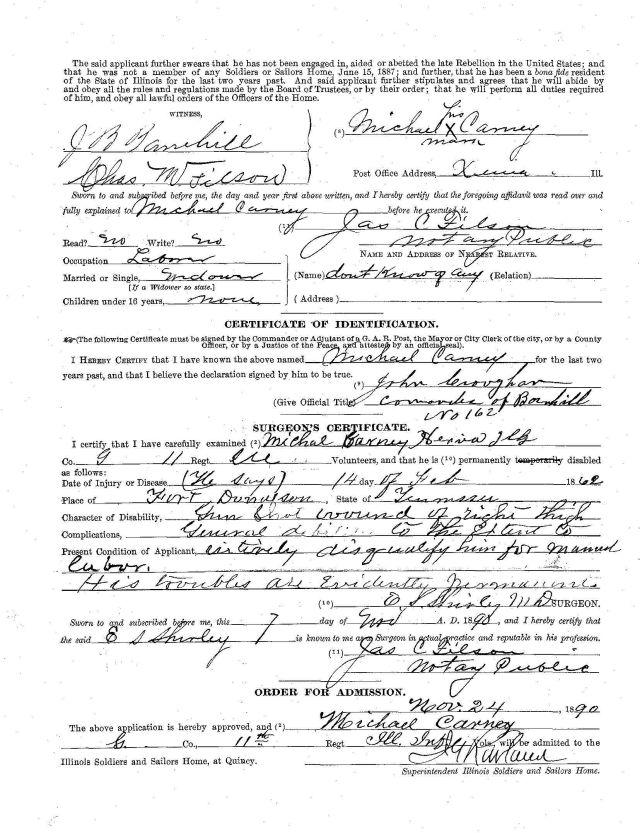 The said applicant further swears that he has not been engaged in, aided or abetted the late Rebellion in the United States; and
that he was not a member of any Soldiers or Sailors Home, June 15, 1887; and further, that he has been a bona fide resident
of the State of Illinois for the last two years past. And said applicant further stipulates and agrees that he will abide by
and obey all the rules and regulations made by the Board of Trustees, or by their order; that he will perform all duties required
of him, and obey all lawful orders of the Officers of the Home.
WITNESS,
his
(*) Michael X Carney
mark
J B Tanehill
Chas. M Filson
Post Office Address, Xenia Ill.
Sworn to and subscribed before me, the day and year first above written, and I hereby certify that the foregoing affidavit was read over and
fully explained to Michael Carney before he executed it.
Jas C Filson
Notary Public
Read? No Write? No
NAME AND ADDRESS OF NEAREST RELATIVE.
Occupation Laborer
Married or Single, Widower (Name) dont Know of any (Relation)
[If a Widower so state.]
Children under 16 years, none (Address)
CERTIFICATE OF IDENTIFICATION.
(The following Certificate must be signed by the Commander or Adjutant of a G. A. R. Post, the Mayor or City Clerk of the city, or by a County
Officer, or by a Justice of the Peace, and attested by an official seal).
I HEREBY CERTIFY that I have known the above named Michael Carney for the last two
years past, and that I believe the declaration signed by him to be true.
John Croughan
(Give Official Title) Comander of
No 162
SURGEON'S CERTIFICATE.
I certify that I have carefully examined (2) Michal Carney Ills
Co. G 11 Regt. Ills Volunteers, and that he is (10) permanently temporarily disabled
as follows:
Date of Injury or Disease, (He says) 14 day of Feb 1862
Place of Fort Donalson, State of Tennessee
Character of Disability, Gun Shot wound of right thigh
Complications, General debility to the Extent to
Present Condition of Applicant, entirely disqualify him for manuel
labor.
His troubles are Evidently permanent
(10) E S Shirley MD SURGEON.
Sworn to and subscribed before me, this 7 day of Nov A. D. 1890, and I hereby certify that
the said E S Shirley is known to me as a Surgeon in actual practice and reputable in his profession.
(11) Jas C Filson
Notary Public
ORDER FOR ADMISSION.
Nov. 24, 1890
The above application is hereby approved, and (2) Michael Carney
G. Co., 11th Regt Ill. Inft Vols., will be admitted to the
Illinois Soldiers and Sailors Home, at Quincy.
Superintendent Illinois Soldiers and Sailors Home.